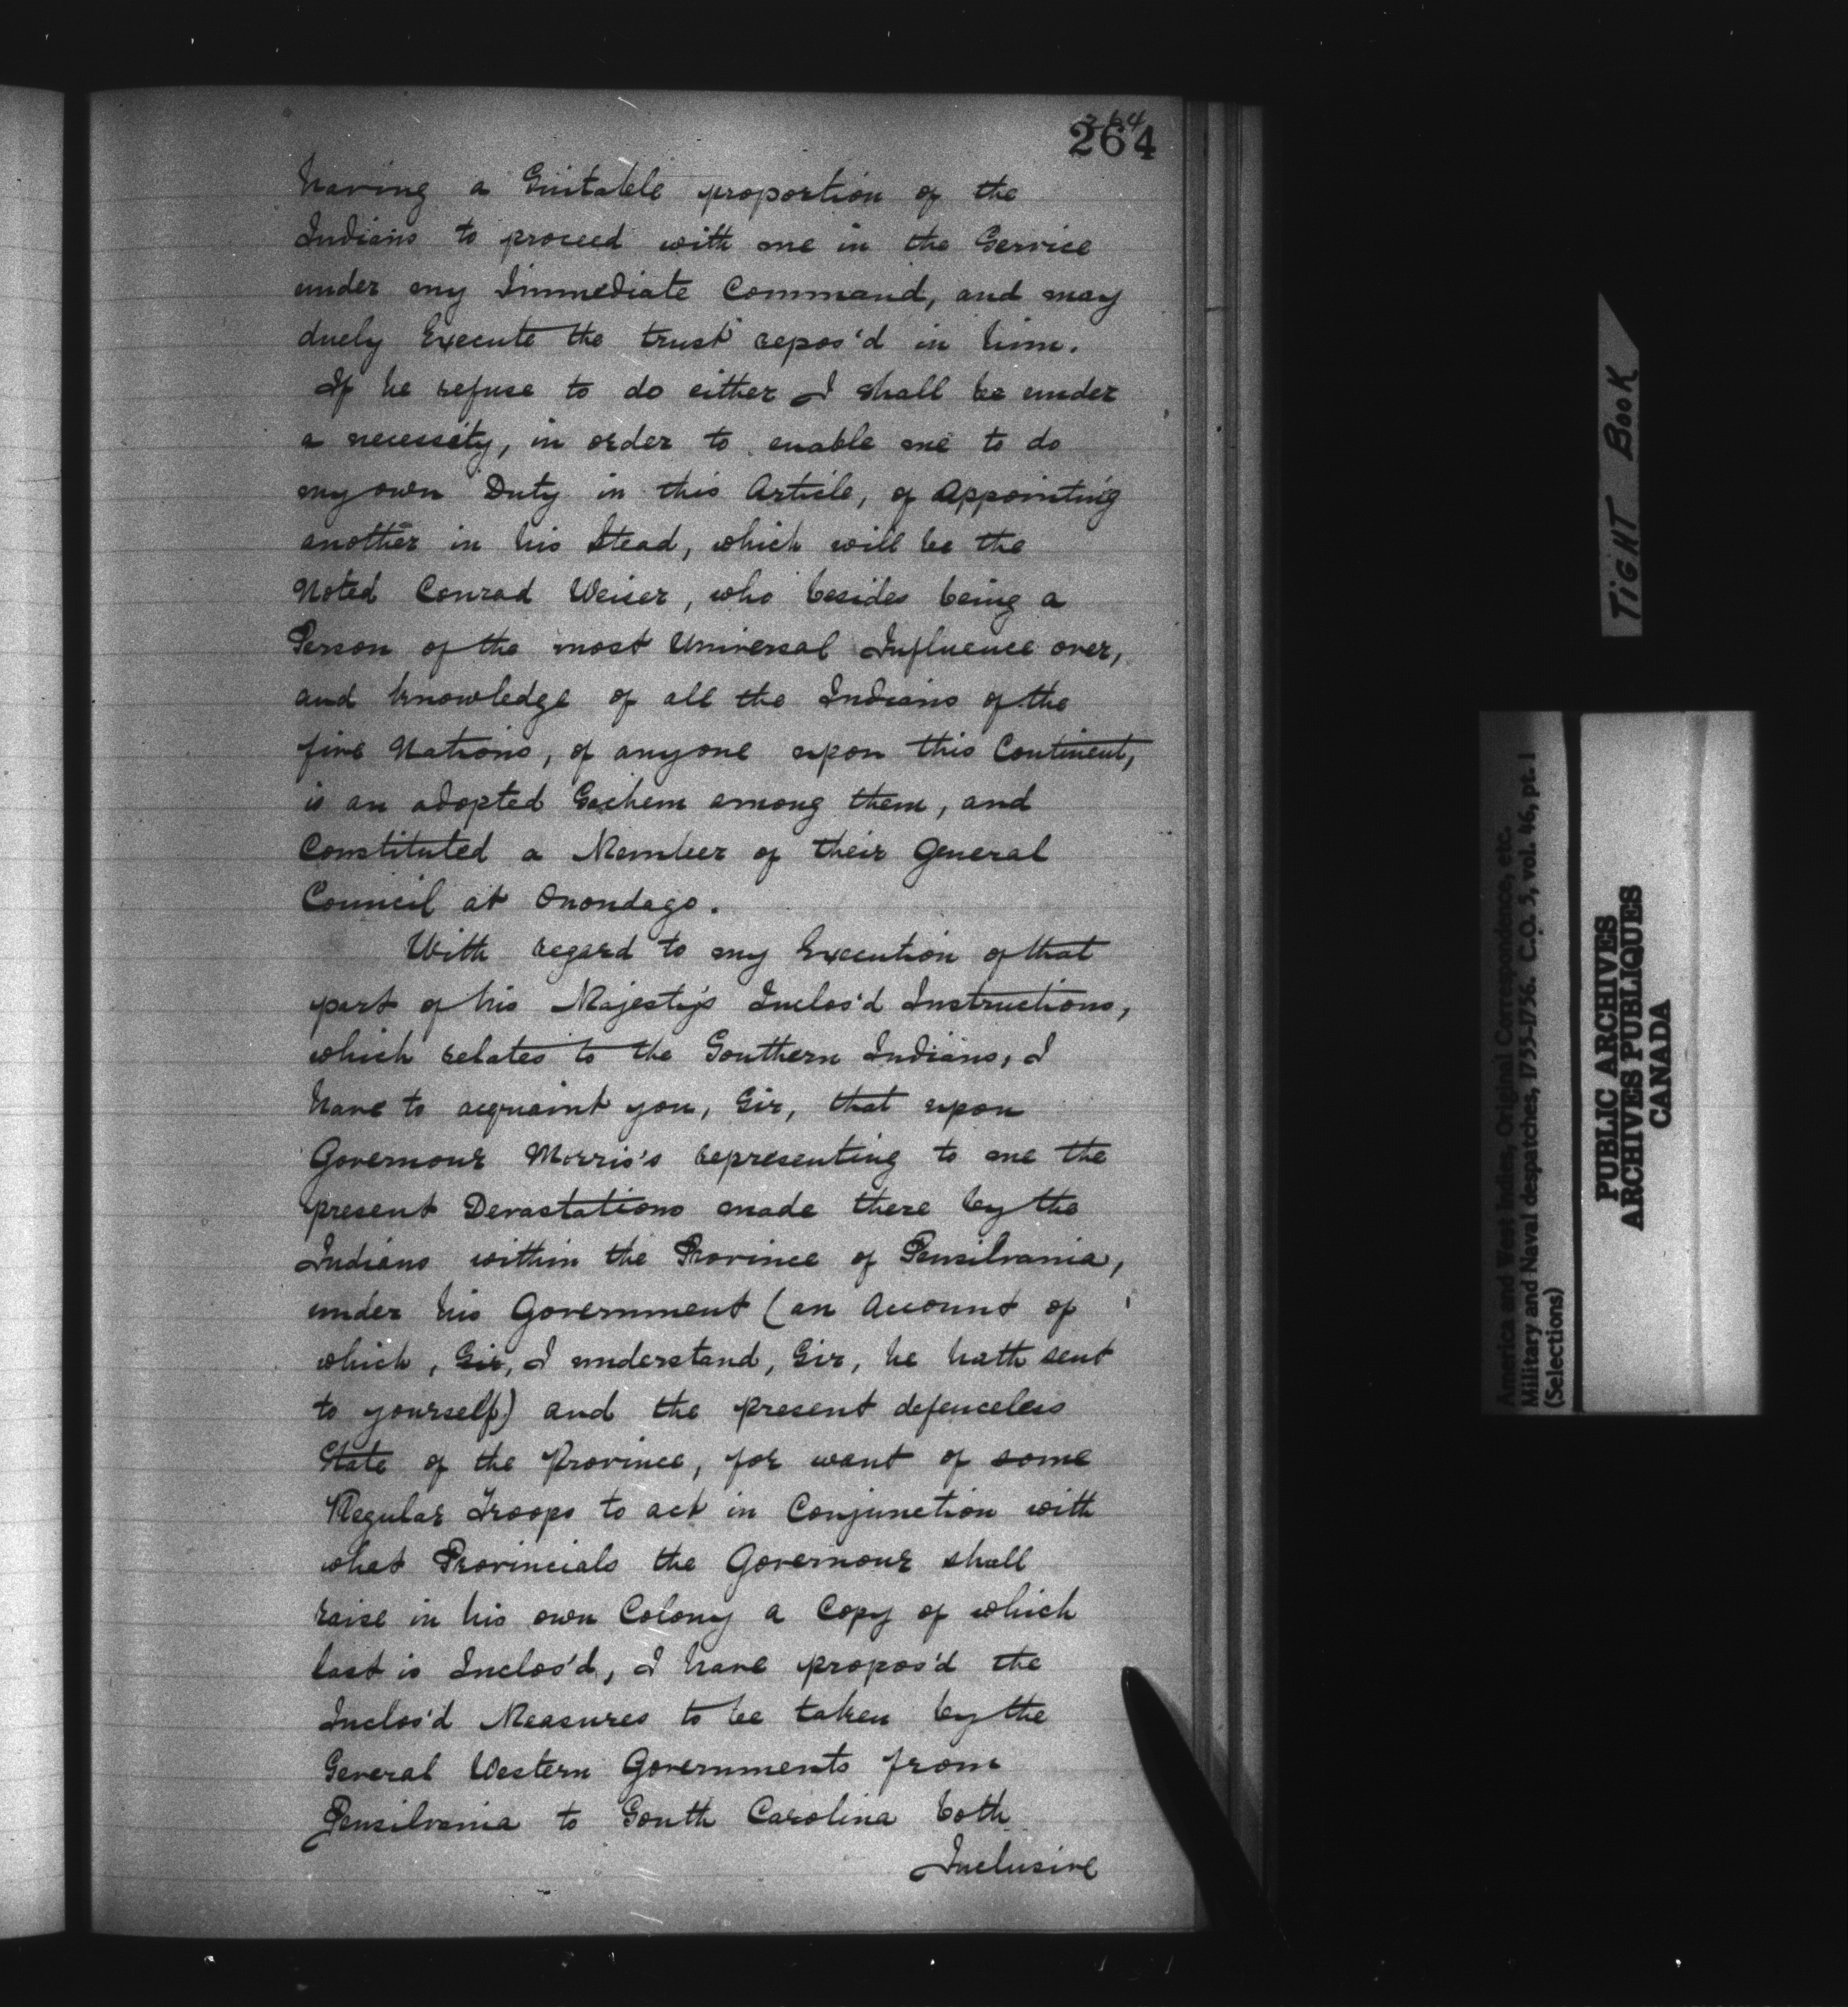 264
264
having a Suitable proportion of the
Indians to proceed with me in the Service
under my Immediate Command, and may
duely Execute the trust repos'd in him.
If he refuse to do either I shall be under
a necessity, in order to enable me to do
my own Duty in this Article, of Appointing
another in his Stead, which will be the
Noted Conrad Weiser, who besides being a
Person of the most Universal Influence over,
and knowledge of all the Indians of the
five Nations, of anyone upon this Continent,
is an adopted Sachem among them, and
Constituted a Member of their General
Council at Onondago.
With regard to my Execution of that
part of his Majesty's Inclos'd Instructions,
which relates to the Southern Indians, I
have to acquaint you, Sir, that upon
Governour Morris's representing to me the
present Devastations made there by the
Indians within the Province of Pensilvania,
under his Government (an Account of
which, Sir, I understand, Sir, he hath sent
to yourself) and the present defenceless
State of the Province, for want of some
Regular Troops to act in Conjunction with
what Provincials the Governour shall
raise in his own Colony a Copy of which
last is Inclos'd, I have propos'd the
Inclos'd Measures to be taken by the
Several Western Governments from
Pensilvania to South Carolina both
Inclusive
TIGHT BOOK
America and West Indies, Original Correspondence, etc.
Military and Naval despatches, 1755-1756. C.O. 5, vol. 46, pt. 1
(Selections)
PUBLIC ARCHIVES
ARCHIVES PUBLIQUES
CANADA